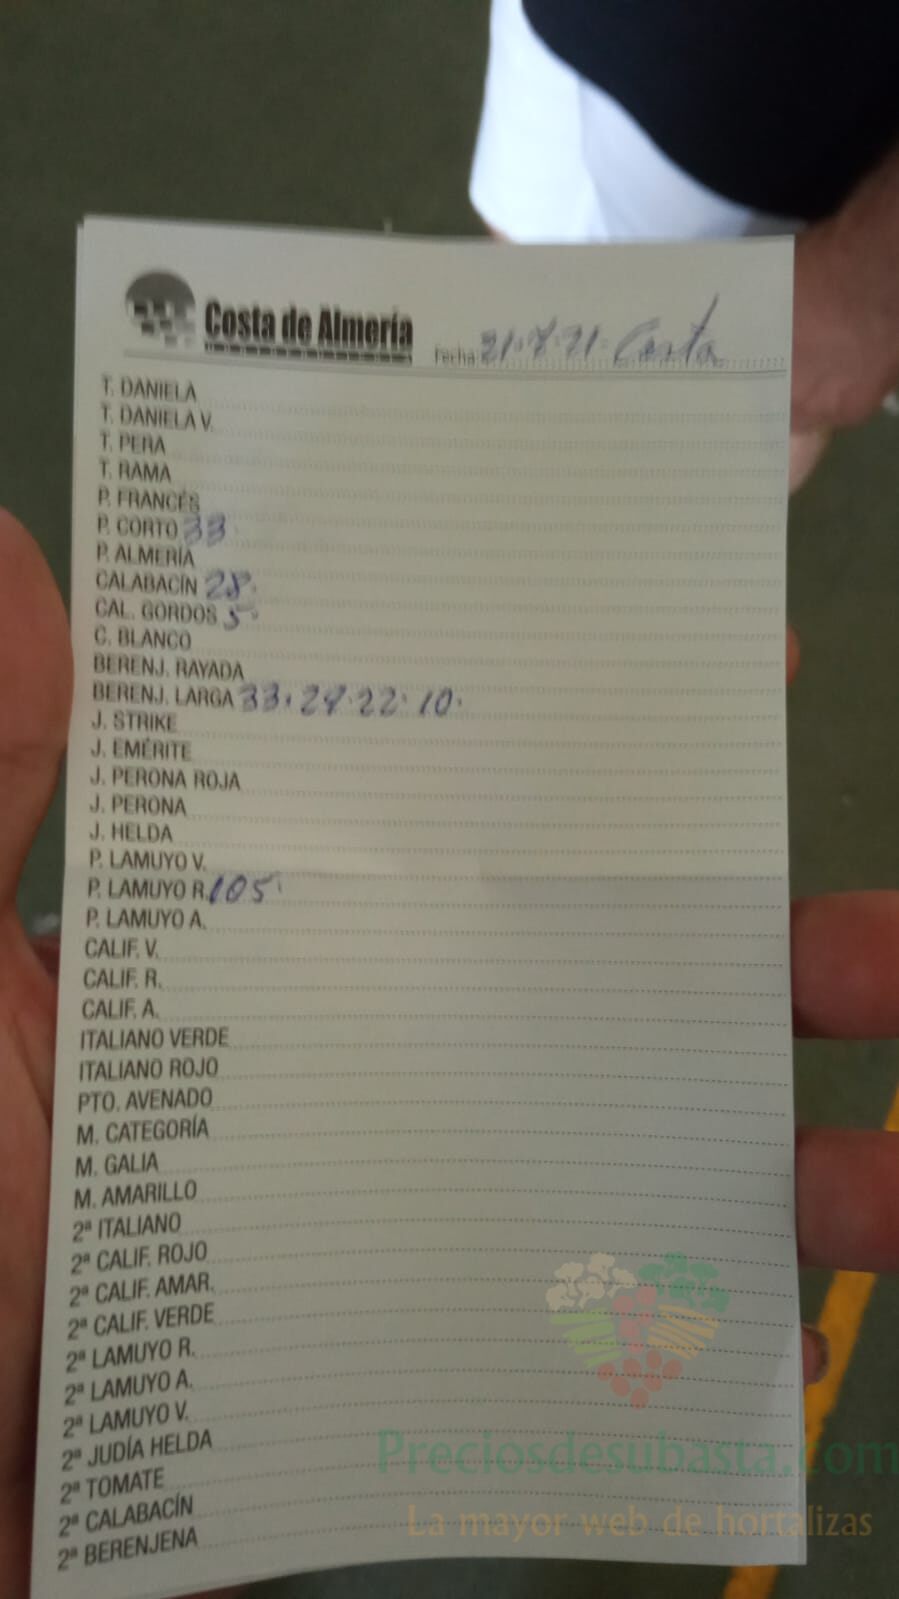 Costa de Almería
Fecha 21.7.21. Costa
T. DANIELA
T. DANIELA V.
T. PERA
T. RAMA
P. FRANCÉS
P. CORTO 33.
P. ALMERÍA
CALABACÍN 28.
CAL. GORDOS 5.
C. BLANCO
BERENJ. RAYADA
BERENJ. LARGA 33. 27. 22. 10.
J. STRIKE
J. EMÉRITE
J. PERONA ROJA
J. PERONA
J. HELDA
P. LAMUYO V.
P. LAMUYO R. 105.
P. LAMUYO A.
CALIF. V.
CALIF. R.
CALIF. A.
ITALIANO VERDE
ITALIANO ROJO
PTO. AVENADO
M. CATEGORÍA
M. GALIA
M. AMARILLO
2ª ITALIANO
2ª CALIF. ROJO
2ª CALIF. AMAR.
2ª CALIF. VERDE
2ª LAMUYO R.
2ª LAMUYO A.
2ª LAMUYO V.
2ª JUDÍA HELDA
2ª TOMATE
2ª CALABACÍN
2ª BERENJENA
Preciosdesubasta.com
La mayor web de hortalizas